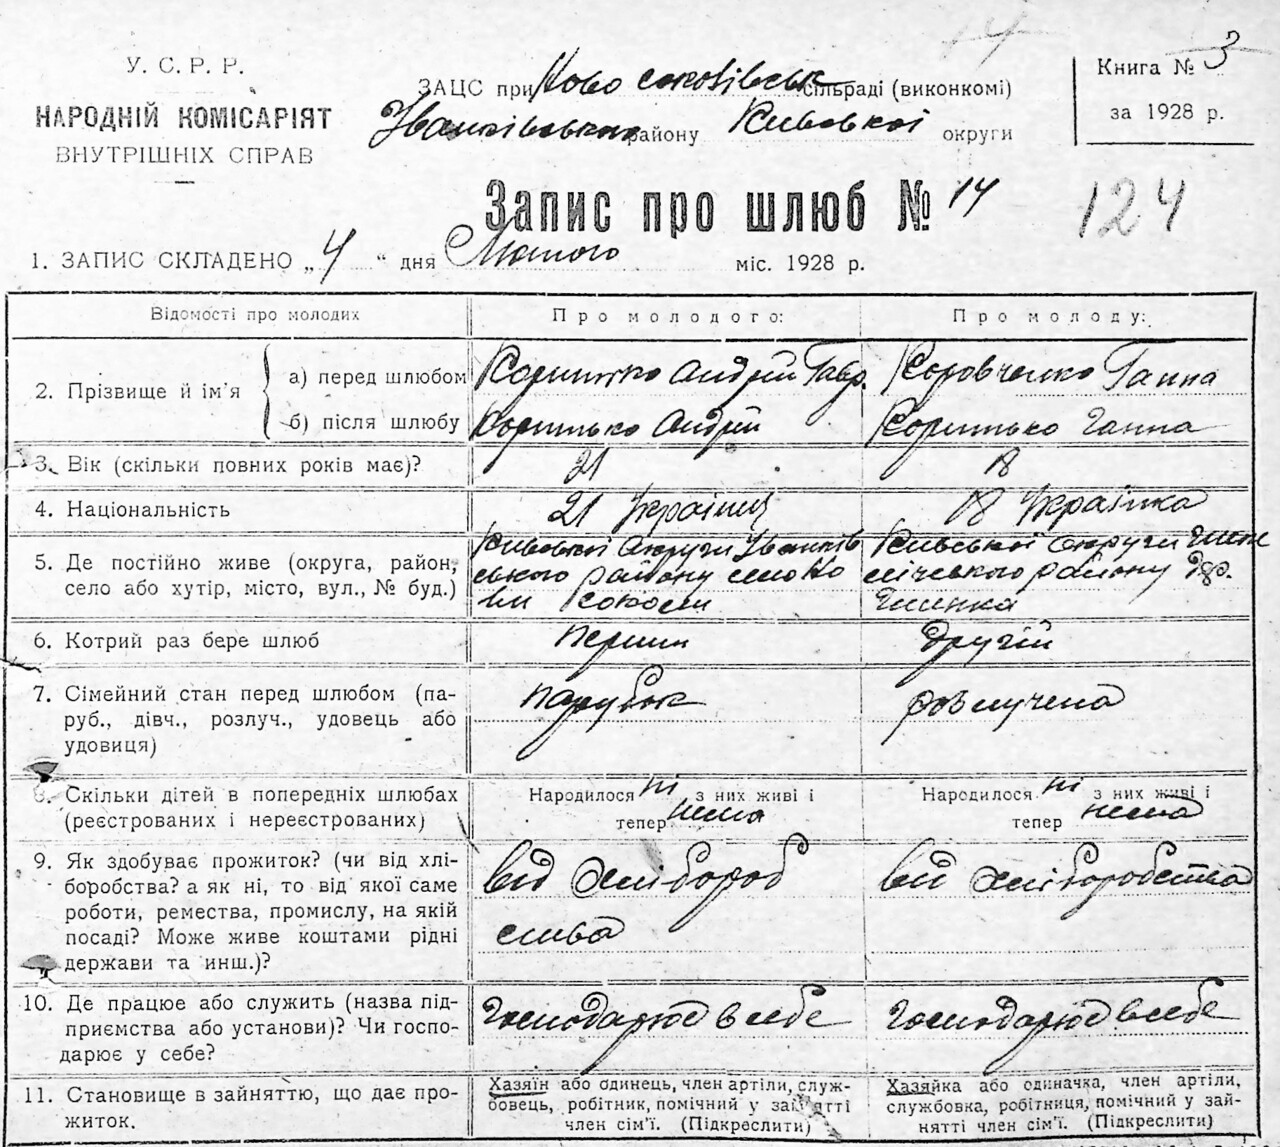 14
У. С. Р. Р.
НАРОДНІЙ КОМІСАРІЯТ
ВНУТРІШНІХ СПРАВ
ЗАЦС при Ново соколівськ сільраді (виконкомі)
Іванківського району Київської округи
Книга № 3
за 1928 р.
Запис про шлюб № 14
124
1. ЗАПИС СКЛАДЕНО „4“ дня Лютого міс. 1928 р.
Відомості про молодих
Про молодого:
Про молоду:
2. Прізвище й ім’я
а) перед шлюбом
Андрій Гавр.
Коровченко Ганна
б) після шлюбу
Коритько Андрій
Коритько Ганна
3. Вік (скільки повних років має)?
21
18
4. Національність
21 Українц
18 Українка
5. Де постійно живе (округа, район, село або хутір, місто, вул., № буд.)
Київської округи Іванків
ського району село Но
ви Соколи
Київської округи
району
6. Котрий раз бере шлюб
перший
другій
7. Сімейний стан перед шлюбом (па-
руб., дівч., розлуч., удовець або
удовиця)
парубок
розлучена
8. Скільки дітей в попередніх шлюбах
(реєстрованих і нереєстрованих)
Народилося ні з них живі і
тепер нема
Народилося ні з них живі і
тепер нема
9. Як здобуває прожиток? (чи від хлі-
боробства? а як ні, то від якої саме
роботи, ремества, промислу, на якій
посаді? Може живе коштами рідні
держави та инш.)?
від хлібороб
ства
від хліборобства
10. Де працює або служить (назва під-
приємства або установи)? Чи госпо-
дарює у себе?
господарює в себе
господарює в себе
11. Становище в зайняттю, що дає про-
житок.
Хазяїн або одинець, член артіли, служ-
бовець, робітник, помічний у зайнятті
член сім’ї. (Підкреслити)
Хазяйка або одиначка, член артіли,
службовка, робітниця, помічний у зай-
нятті член сім’ї. (Підкреслити)